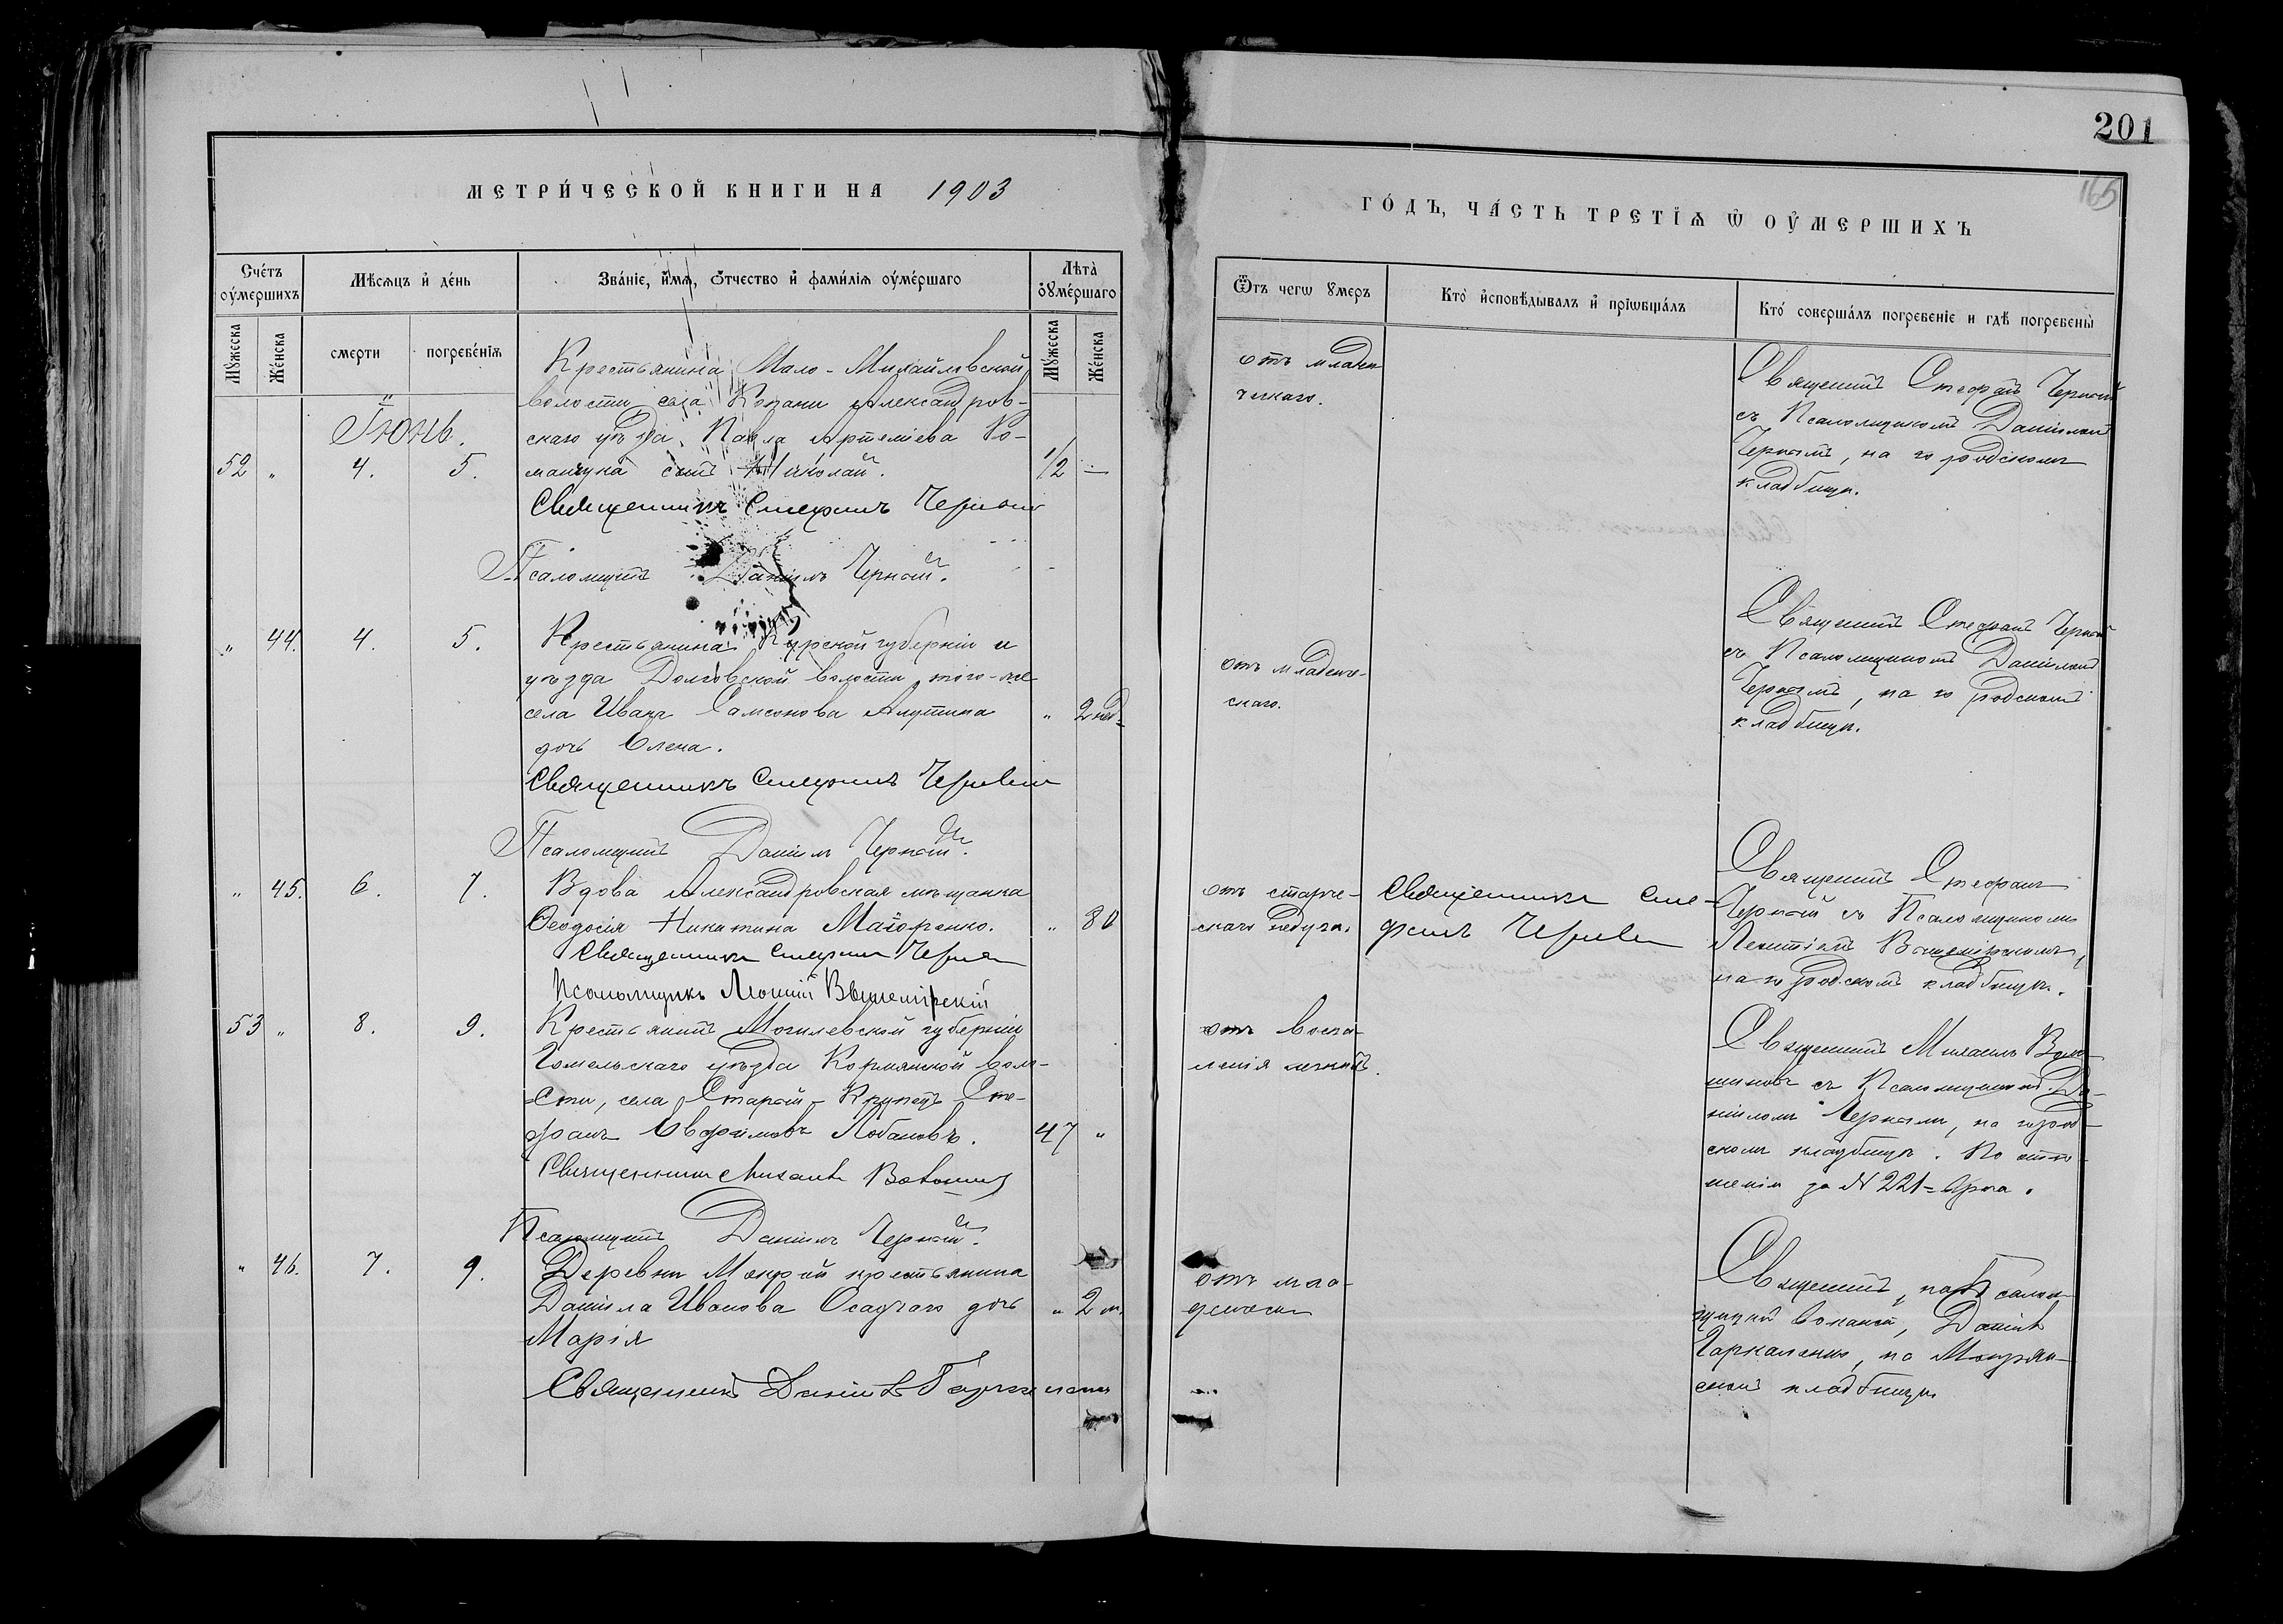 201
165
МЕТРИ́ЧЕСКОЙ КНИГИ НА 1903
ГО́ДЪ, ЧА́СТЬ ТРЕТІ́Ѧ Ѿ ОУ҆МЕРШИХЪ
Сче́тъ оу҆ме́ршихъ
Мѣ́сѧцъ и҆ де́нь
Зва́нїе, и҆́мѧ, ѻ҆́тчество и҆ фами́лїѧ оу҆ме́ршаго
Лѣта̀ оу҆ме́ршаго
Ѿ чегѡ̀ ᲂу҆́меръ
Кто̀ и҆сповѣ́дывалъ и҆ прїѡбща́лъ
Кто́ соверша́лъ погребе́нїе и гдѣ̀ погребены̀
Мꙋ́жеска
Же́нска
смерти
погребе́нїѧ
Мꙋ́жеска
Же́нска
Іюнь.
Крестьянина Мало-Михайловской
волости села Александров-
скаго уѣзда, Павла Артемiева Ро-
52 „ 4. 5. манчука сынъ Николай. 1/2 —
Священникъ Стефанъ Черный
Псаломщикъ Данiилъ Черный.
отъ младен
ческаго.
Священникъ Стефанъ Черный
съ Псаломщикомъ Данiиломъ
Чернымъ, на городскомъ
кладбищѣ.
„ 44. 4. 5. Крестьянина Курской губернiи и
уѣзда Долговской волости того-же
села Ивана Самсонова Алутина „ 2 нед.
дочь Елена.
Священникъ Стефанъ Черный
Псаломщикъ Данiилъ Черный.
отъ младенче-
скаго.
Священникъ Стефанъ Черный
съ Псаломщикомъ Данiиломъ
Чернымъ, на городскомъ
кладбищѣ.
„ 45. 6. 7. Вдова Александровская мѣщанка
Ѳеодосiя Никитина Майоренко. „ 80
Священникъ Стефанъ Черный
Псаломщикъ Леонтiй Вышемiрскiй
отъ старче-
скаго недуга.
Священникъ Сте-
фанъ Черный
Священникъ Стефанъ
Черный съ Псаломщикомъ
Леонтiемъ Вышемiрскимъ,
на городскомъ кладбищѣ.
53 „ 8. 9. Крестьянинъ Могилевской губернiи
Гомельскаго уѣзда Кормянской воло-
сти, села Старый-Крупецъ Сте-
фанъ Евфимовъ Лобановъ. 47 „
Священникъ Михаилъ Волошинов
Псаломщикъ Данiилъ Черный.
отъ воспа-
ленiя легкихъ.
Священникъ Михаилъ Воло-
шиновъ съ Псаломщикомъ Да-
нiиломъ Чернымъ, на город-
скомъ кладбищѣ. По отно-
шенiю за № 221
„ 46. 7. 9. Деревни Мокрой крестьянина
Данiила Иванова Осадчаго дочь „ 2 м.
Марiя
Священникъ Данiилъ
отъ мла-
денческ
Священникъ, на псалом-
щицкой вакансiи, Данiилъ
на Мокрян-
скомъ кладбищѣ.